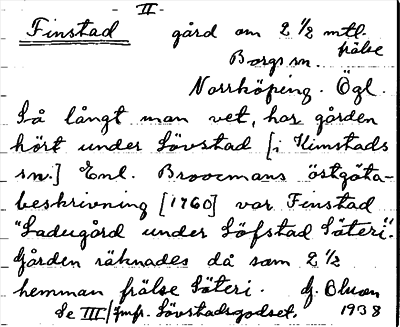 - II -
Finstad gård om 2 1/2 mtl.
frälse
Borgs sn.
Norrköping. Ögl.
Så långt man vet, har gården
hört under Lövstad [i Kimstads
sn.] Enl. Broocmans östgöta-
beskrivning [1760] var Finstad
"Ladugård under Löfstad Säteri".
Gården räknades då som 2 1/2
hemman frälse Säteri. G. Bluon
Se III/Jmf. Lövstadsgodset. 1938